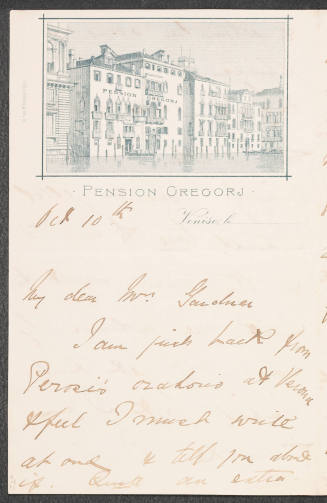 PENSION GREGORJ
· PENSION GREGORJ ·
Oct 10th
Venise, le
My dear Mrs Gardner
I am just back from
Perosi's oratorio at Verona
& feel I must write
at once & tell you about
it. an extra